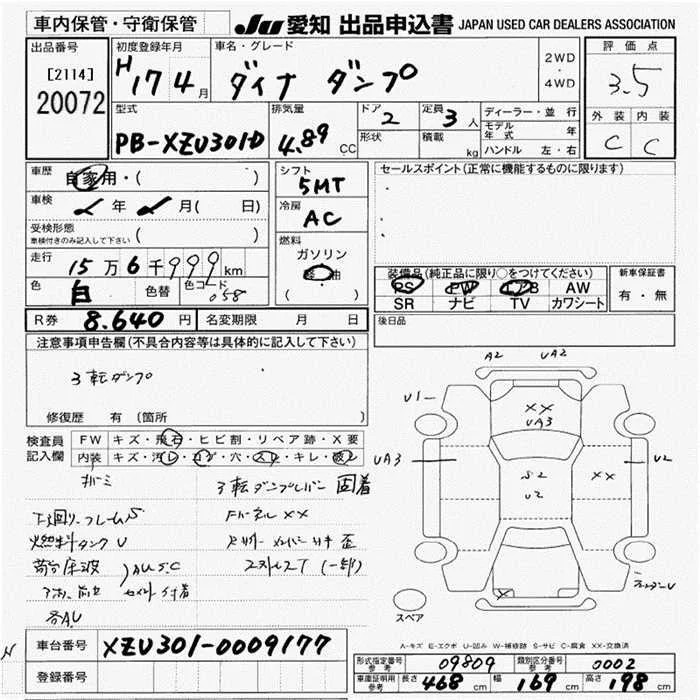 車内保管・守衛保管
JU 愛知 出品申込書 JAPAN USED CAR DEALERS ASSOCIATION
出品番号
[2114]
20072
初度登録年月
H17 4月
車名・グレード
ダイナ ダンプ
2WD
・
4WD
評価点
3.5
外装 内装
C C
型式
PB-XZU301D
排気量
4.89 CC
ドア
2
定員
3人
形状
積載
kg
ディーラー・並行
モデル年式 年
ハンドル 左・右
車歴
自家用・( )
車検
年 月( 日)
受検形態
車検付きのみ記入して下さい ( )
走行
15万6千999km
色
白
色替
色コード
058
R券 8.640円
名変期限 月 日
シフト
5MT
冷房
AC
燃料
ガソリン
軽油
( )
セールスポイント(正常に機能するものに限ります)
装備品(純正品に限り○をつけてください)
PS PW エアB AW
SR ナビ TV カワシート
新車保証書
有・無
後日品
注意事項申告欄(不具合内容等は具体的に記入して下さい)
3転ダンプ
修復歴 有 〔箇所 〕
検査員
記入欄
FW キズ・飛石・ヒビ割・リペア跡・X要
内装 キズ・汚レ・コゲ・穴・スレ・キレ・破レ
3転ダンプレバー 固着
下回り、フレームS
燃料タンクU
荷台床波
AU S.C
セメント付着
各AU
FパネルXX
歪
A2 UA2
U1
XX
UA3
UA3
S2
U2
XX
U2
X
スペア
A-キズ E-エクボ U-凹み W-補修跡 S-サビ C-腐食 XX-交換済
車台番号 XZU301-0009177
登録番号
形式指定番号
参考
09809
類別区分番号
参考
0002
車庫証明用
参考
長さ 468cm 幅 169cm 高さ 198cm